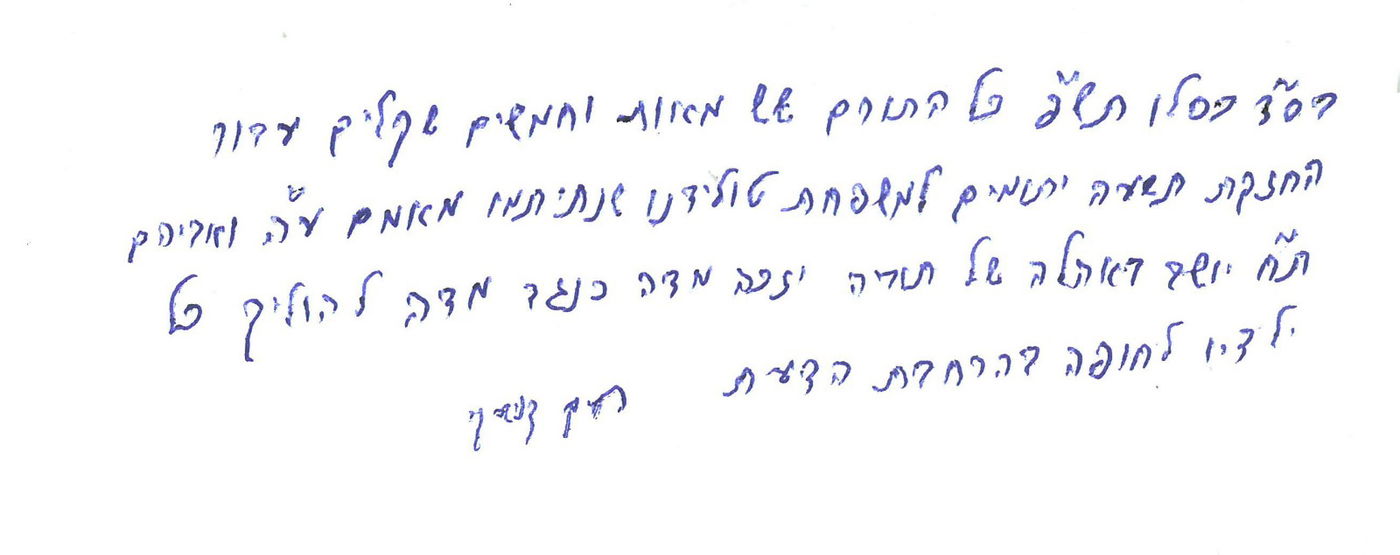 בס"ד כסלו תש"פ כל התורם שש מאות וחמשים שקלים עבור
החזקת תשעה יתומים למשפחת טולידנו שנתיתמו מאומם ע"ה ואביהם
ת"ח יושב באהלה של תורה יזכה מדה כנגד מדה להוליך כל
ילדיו לחופה בהרחבת הדעת חיים קניבסקי